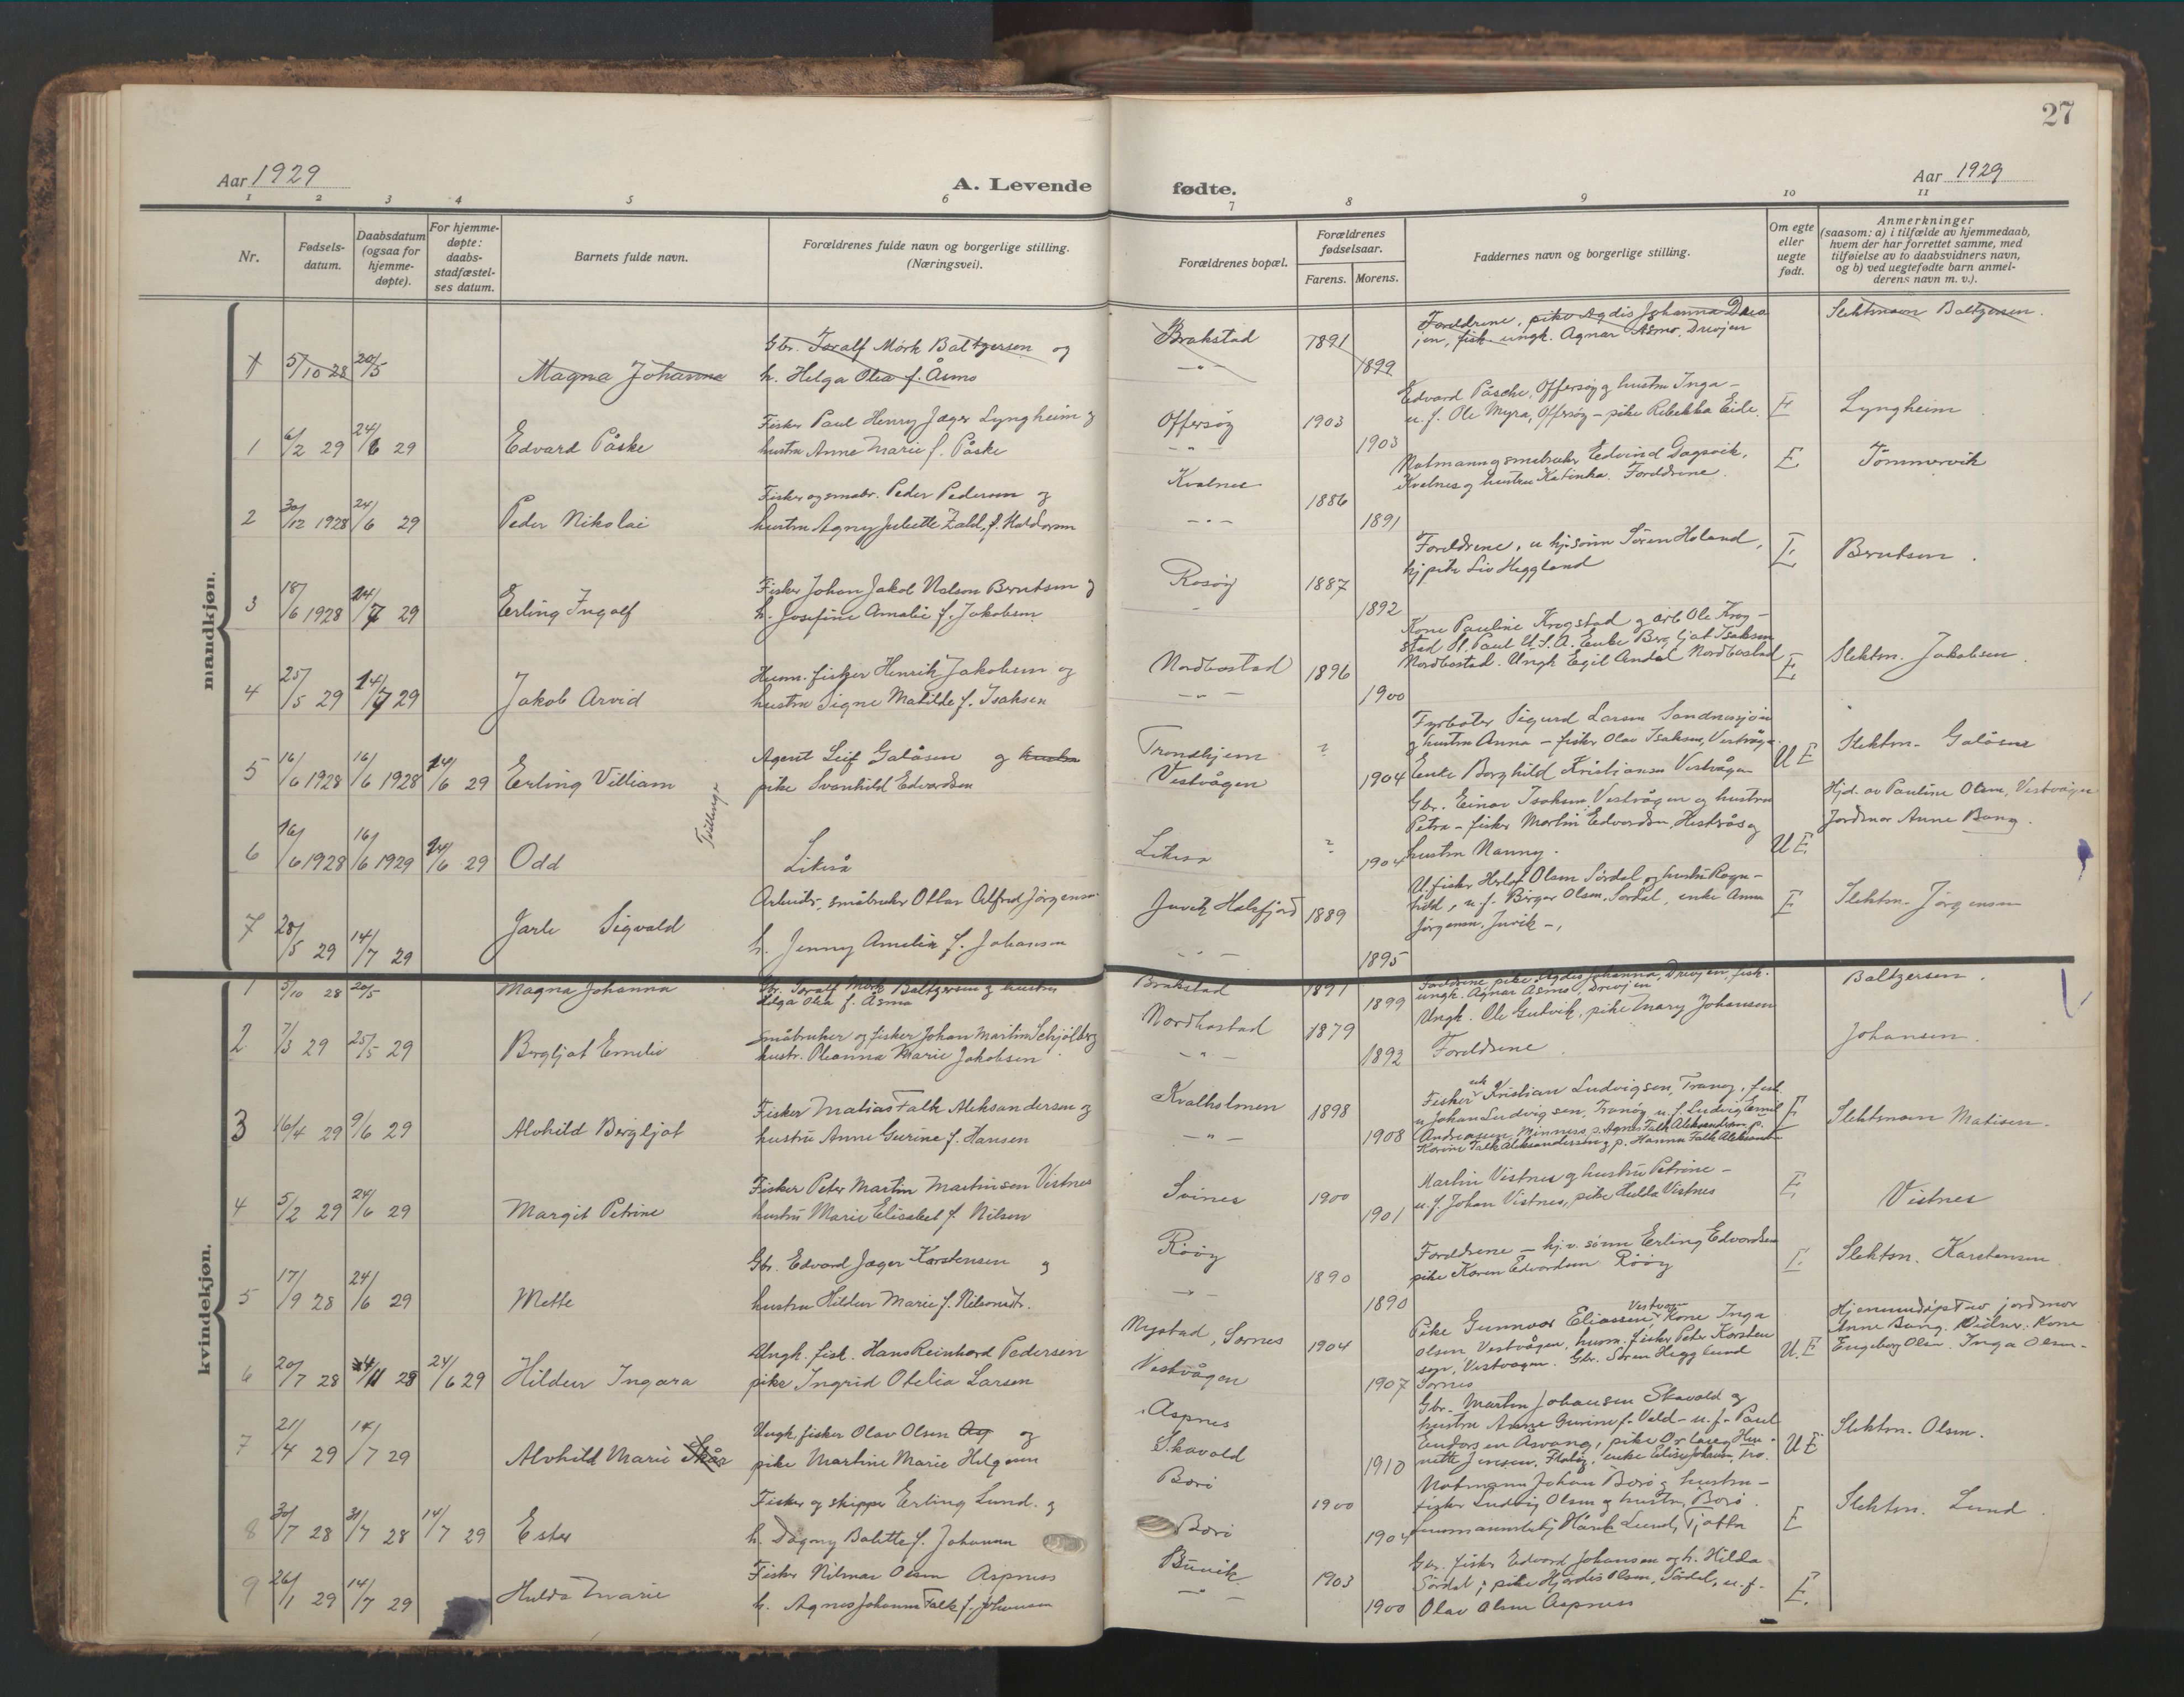 27
Aar 1929
A. Levende fødte.
Aar 1929
1 2 3 4 5 6 7 8 9 10 11
Nr.
Fødsels-
datum.
Daabsdatum
(ogsaa for
hjemme-
døpte).
For hjemme-
døpte:
daabs-
stadfæstel-
ses datum.
Barnets fulde navn.
Forældrenes fulde navn og borgerlige stilling.
(Næringsvei).
Forældrenes bopæl.
Forældrenes
fødselsaar.
Farens. Morens.
Faddernes navn og borgerlige stilling.
Om egte
eller
uegte
født.
Anmerkninger
(saasom: a) i tilfælde av hjemmedaab,
hvem der har forrettet samme, med
tilføielse av to daabsvidners navn,
og b) ved uegtefødte barn anmel-
derens navn m. v.).
mandkjøn.
1 5/10 28 20/5 Magna Johanna
Gbr. Toralf Mørk Baltzersen og
h. Helga Olea f. Åsmo
Brakstad
1891
1899
Foreldrene, pike Agdis Johanna Drev
jen, fisk. ungk. Agnar Åsmo. Drevjen
Slektsnavn Baltzersen.
1 6/2 29 24/6 29 Edvard Påske
Fisker Paul Henry Jæger Lyngheim og
hustru Anne Marie f. Påske
Offersøy
1903
1903
Edvard Påsche, Offersøy og hustru Inga –
u. f. Ole Myra, Offersøy – pike Rebekka Eide.
E
Lyngheim
2 30/12 1928 24/6 29 Peder Nikolai
Fisker og småbr. Peder Pedersen og
hustru Agny Juliette Zahl, f. Haldorsen
Kvalnes
1886
1891
Notmann og småbruker Edvind Dagsvik,
Kvalnes og hustru Katinka. Foreldrene.
E
Tommervik
3 18/6 1928 14/7 29 Erling Ingolf
Fisker Johan Jakol Nelson Berntsen og
h. Josefine Amalie f. Jakobsen
Rosøy
1887
1892
Foreldrene, u hj. sønn Søren Høland,
hj pike Liv Heggland
E
Berntsen.
4 25/5 29 14/7 29 Jakob Arvid
Husm. fisker Henrik Jakobsen og
hustru Signe Matilde f. Isaksen
Nordbostad
1896
1900
Kone Pauline Krogstad og arb Ole Krog-
stad St. Paul U.S.A. Enke Bergljot Isaksen
Nordbostad. Ungk Egil Andal Nordbostad
E
Slektsn. Jakobsen.
5 16/6 1928 16/6 1928 24/6 29 Erling Villiam
Tvillinger
Agent Leif Galåsen og hustru
pike Svanhild Edvardsen
Trondhjem
Vestvågen
?
1904
Fyrbøter Sigurd Larsen Sandnessjøen
og hustru Anna – fisker Olav Isaksen, Vestvåge.
Enke Borghild Kristiansen Vestvågen
U E
Slektsn. Galåsen
6 16/6 1928 16/6 1929 24/6 29 Odd
Likeså
Likeså
?
1904
Gbr. Einar Isaksen, Vestvågen og hustru
Petra – fisker Martin Edvardsen, Hestvås og
hustru Nanny.
U E
Hjd. av Pauline Olsen, Vestvågen
Jordmor Anne Bang.
7 28/5 29 14/7 29 Jarle Sigvald
Arbeider, småbruker Ottar Alfred Jørgensen
h. Jenny Amelia f. Johansen
Juvik Halsfjord
1889
1895
U. fisker Herlof Olsen Sørdal og hustru Ragn-
hild, u. f. Birger Olsen, Sørdal, enke Anna
Jørgensen, Juvik –,
E
Slektsn. Jørgensen
kvindekjøn.
1 5/10 28 20/5 Magna Johanna
Gbr. Toralf Mørk Baltzersen og hustru
Helga Olea f. Åsmo
Brakstad
1891
1899
Foreldrene pike Agdis Johanna, Drevjen, fisk.
ungk. Agnar Åsmo, Drevjen
Baltzersen.
2 7/3 29 25/5 29 Bergljot Emelie
Småbruker og fisker Johan Martin Schjølberg
hustr. Oleanna Marie Jakobsen
Nordbostad
1879
1892
Ungk. Ole Gutvik, pike Mary Johansen
Foreldrene.
Johansen.
3 16/4 29 9/6 29 Alvhild Bergljot
Fisker Matias Falk Aleksandersen og
hustru Anne Gurine f. Hansen
Kvalholmen
1898
1908
Fisker Kristian Ludvigsen, Tranøy, fisk.
u Johan Ludvigsen, Tranøy, u. f. Ludvig Emil
Andreassen, Minnes, p. Agnes Falk Aleksandersen p.
Karine Falk Aleksandersen og p. Hanna Falk Aleksand-
E
Slektsnavn Matisen.
4 5/2 29 24/6 29 Margit Petrine
Fisker Peter Martin Martinsen Vistnes
hustru Marie Elisabet f. Nilsen
Svines
1900
1901
Martin Vistnes og hustru Petrine –
u. f. Johan Vistnes, pike Hulda Vistnes
E
Vistnes
5 17/9 28 24/6 29 Mette
Gbr. Edvard Jæger Karstensen og
hustru Hildur Marie f. Nilsendtr.
Rōōy
1890
1890
Foreldrene – hj. v. sønn Erling Edvardsen
pike Karen Edvardsen Rōōy
E.
Slektsn. Karstensen
6 20/7 28 4/11 28 24/6 29 Hildur Ingara
Ungk. fisk. Hans Reinhard Pedersen
pike Ingrid Otelia Larsen
Nystad, Sørnes
Vestvågen
1904
1907
Pike Gunnvor Eliassen, Vestvågen Kone Inga
Olsen Vestvågen, husm. fisker Peter Karsten
sen, Vestvågen. Gbr. Søren Hegglund
Sørnes
U.E
Hjemmedøpt av jordmor
Anne Bang. Vidner: Kone
Engeborg Olsen. Inga Olsen.
7 21/4 29 14/7 29 Alvhild Marie Skår
Ungk. fisker Olav Olsen Asp og
pike Martine Marie Helgesen
Aspnes
Skavold
1910
Gbr. Martin Johansen Skavold og
hustru Anne Gurine f. Vald – u. f. Paul
Eindorsen Åsvang, pike Hen-
nette Jensen, Flatøy, enke Elise Johansen, Tro.
U E
Slektsn. Olsen.
8 30/7 28 31/7 28 14/7 29 Ester
Fisker og skipper Erling Lund. og
h. Dagny Balette f. Johansen
Borō
Borō
1900
1904
Notmann Johan Borō og hustru –
fisker Ludvig Olsen og hustru, Borō.
Lund, Tjøtta
E
Slektsn. Lund.
9 26/1 29 14/7 29 Hulda Marie
Fisker Hilmar Olsen Aspnes
h. Agnes Johanne Falk f. Johansen
Buvik
1903
1900
Gbr. fisker Edvard Johansen og h. Hilda
Sørdal; pike Hjørdis Olsen, Sørdal, u. f.
Olav Olsen Aspnes
E.